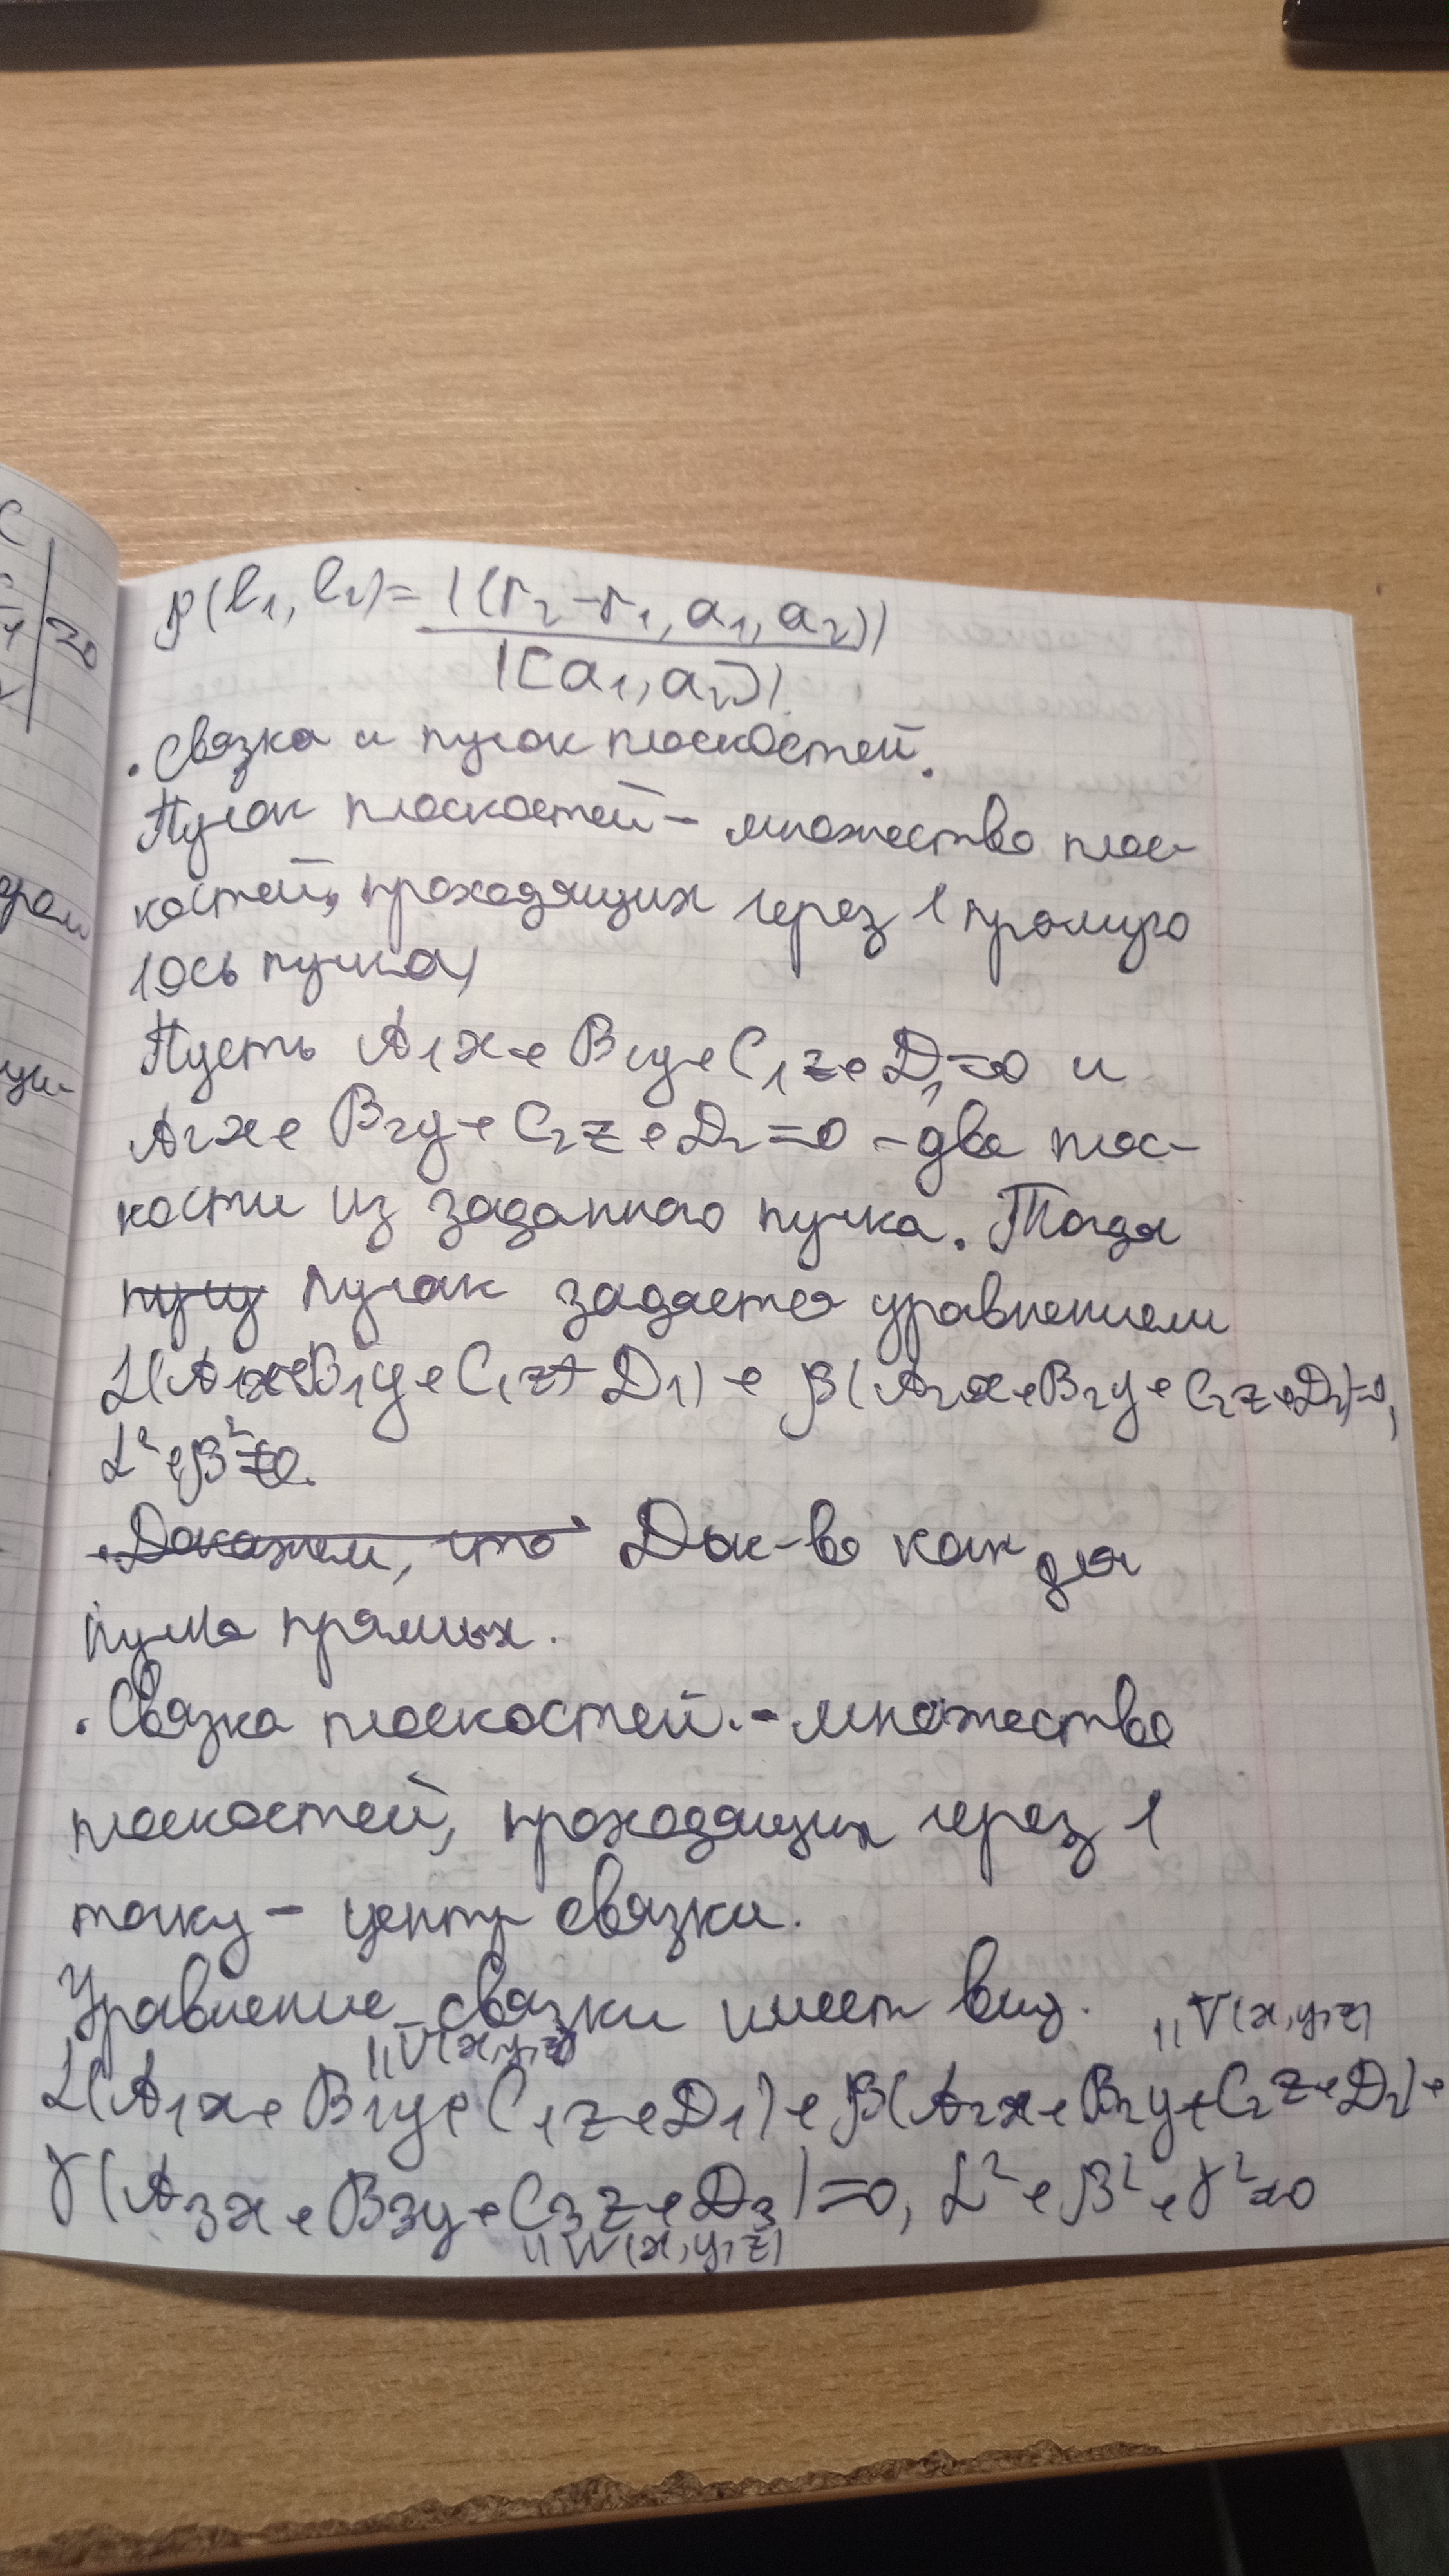 ρ(l₁, l₂) = |(r₂ - r₁, a₁, a₂)|
|[a₁, a₂]|
. Связка и пучок плоскостей.
Пучок плоскостей - множество плос-
костей, проходящих через 1 прямую
(ось пучка)
Пусть A₁x + B₁y + C₁z + D₁ = 0 и
A₂x + B₂y + C₂z + D₂ = 0 - две плос-
кости из заданного пучка. Тогда
пучок задается уравнением
α(A₁x + B₁y + C₁z + D₁) + β(A₂x + B₂y + C₂z + D₂) = 0,
α² + β² ≠ 0.
. Докажем, что Док-во как для
пучка прямых.
. Связка плоскостей. - множество
плоскостей, проходящих через 1
точку - центр связки.
Уравнение связки имеет вид.
α(A₁x + B₁y + C₁z + D₁) + β(A₂x + B₂y + C₂z + D₂) +
γ(A₃x + B₃y + C₃z + D₃) = 0, α² + β² + γ² ≠ 0
W(x, y, z)